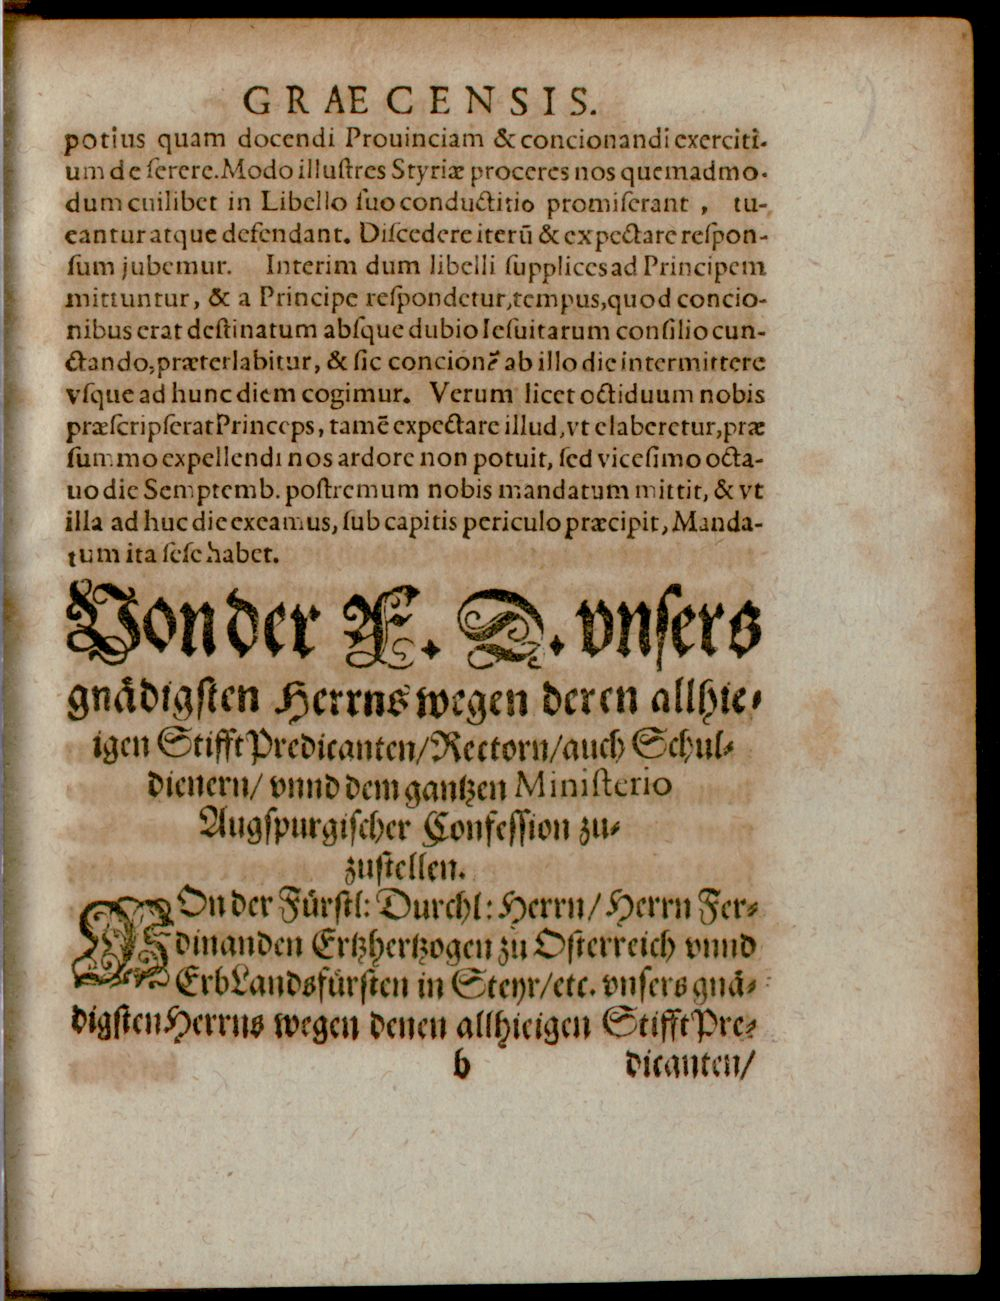 GRAECENSIS.
potius quam docendi Prouinciam & concionandi exerciti-
um deſerere. Modo illuſtres Styriæ proceres nos quemadmo-
dum cuilibet in Libello ſuo conductitio promiſerant , tu-
eantur atque defendant. Diſcedere iterū & expectare reſpon-
ſum jubemur. Interim dum libelli ſupplices ad Principem
mittuntur, & a Principe reſpondetur, tempus, quod concio-
nibus erat deſtinatum abſque dubio Ieſuitarum conſilio cun-
ctando, præterlabitur, & ſic concionē ab illo die intermittere
vſque ad hunc diem cogimur. Verum licet octiduum nobis
præſcripſerat Princeps, tamē expectare illud, vt elaberetur, præ
ſummo expellendi nos ardore non potuit, ſed viceſimo octa-
uo die Semptemb. poſtremum nobis mandatum mittit, & vt
illa ad huc die exeamus, ſub capitis periculo præcipit, Manda-
tum ita ſeſe habet.
Von der F. D. vnſers
gnädigſten Herrns wegen deren allhie-
igen Stifft Predicanten/ Rectorn/ auch Schul-
dienern/ vnnd dem gantzen Miniſterio
Augſpurgiſcher Confeſſion zu-
zuſtellen.
VOn der Fürſtl: Durchl: Herrn/ Herrn Fer-
dinanden Ertzhertzogen zu Oſterreich vnnd
ErbLandsfürſten in Steyr/ etc. vnſers gnä-
digſten Herrns wegen denen allhieigen Stifft Pre-
b dicanten/